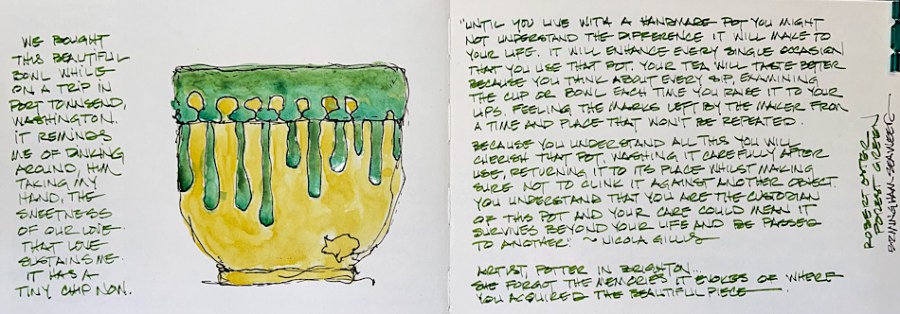 WE BOUGHT
THIS BEAUTIFUL
BOWL WHILE
ON A TRIP IN
PORT TOWNSEND,
WASHINGTON.
IT REMINDS
ME OF DINKING
AROUND, HIM
TAKING MY
HAND, THE
SWEETNESS
OF OUR LOVE.
THAT LOVE
SUSTAINS ME.
IT HAS A
TINY CHIP NOW.
"UNTIL YOU LIVE WITH A HANDMADE POT YOU MIGHT
NOT UNDERSTAND THE DIFFERENCE IT WILL MAKE TO
YOUR LIFE. IT WILL ENHANCE EVERY SINGLE OCCASION
THAT YOU USE THAT POT. YOUR TEA WILL TASTE BETTER
BECAUSE YOU THINK ABOUT EVERY SIP, EXAMINING
THE CUP OR BOWL EACH TIME YOU RAISE IT TO YOUR
LIPS. FEELING THE MARKS LEFT BY THE MAKER FROM
A TIME AND PLACE THAT WON'T BE REPEATED.
BECAUSE YOU UNDERSTAND ALL THIS YOU WILL
CHERISH THAT POT, WASHING IT CAREFULLY AFTER
USE, RETURNING IT TO ITS PLACE WHILST MAKING
SURE NOT TO CLINK IT AGAINST ANOTHER OBJECT.
YOU UNDERSTAND THAT YOU ARE THE CUSTODIAN
OF THIS POT AND YOUR CARE COULD MEAN IT
SURVIVES BEYOND YOUR LIFE AND BE PASSED
TO ANOTHER." ~ NICOLA GILLIS
ARTIST, POTTER IN BRIGHTON...
SHE FORGOT THE MEMORIES IT EVOKES OF WHERE
YOU ACQUIRED THE BEAUTIFUL PIECE
ROBERT OSTER
FOREST GREEN
BIRMINGHAM SEAWEED